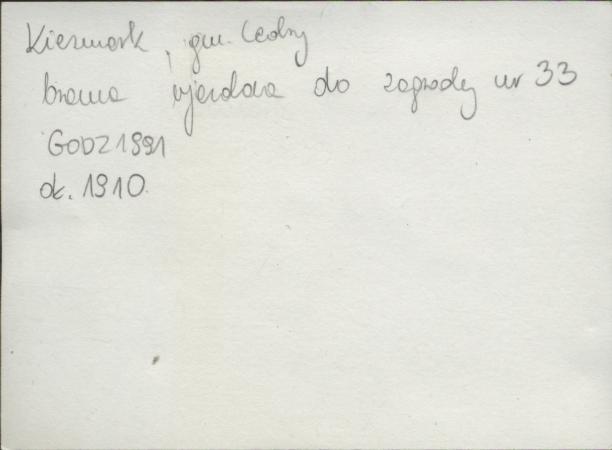 Kiezmark, gm. Cedry
brama wjazdowa do zagrody nr 33
GODZ 1991
ok. 1910.